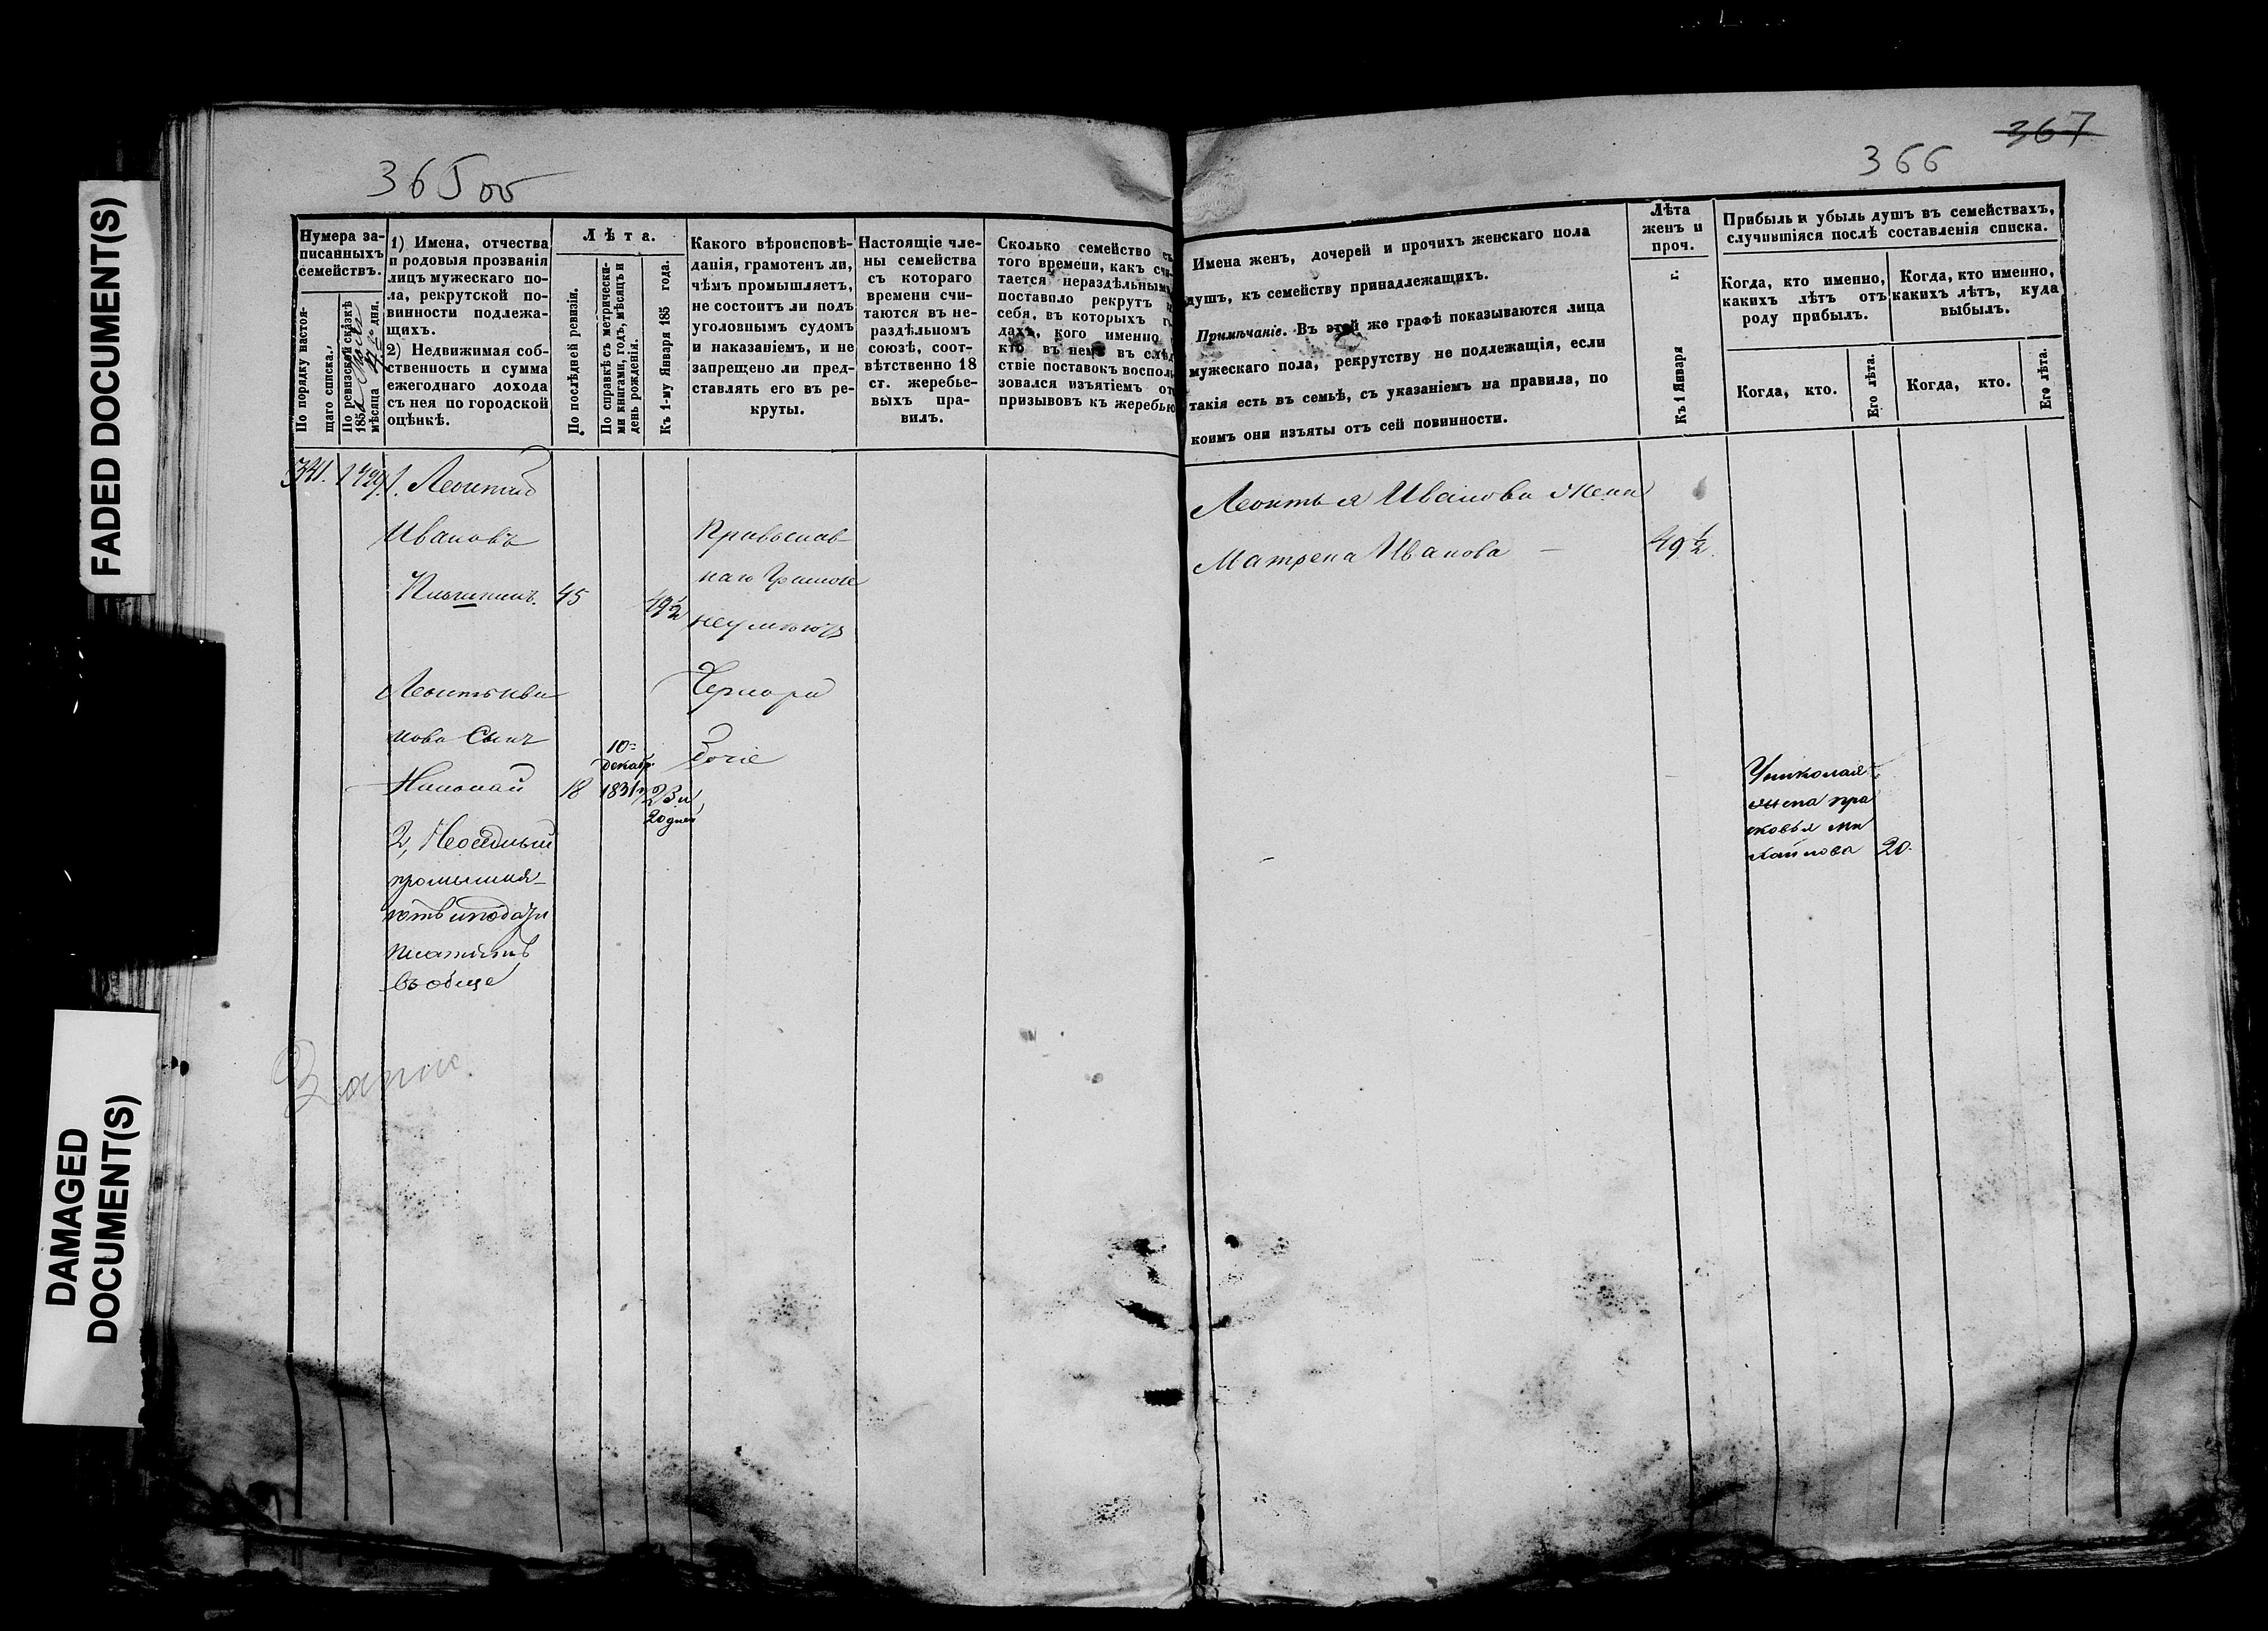 FADED DOCUMENT(S)
DAMAGED
DOCUMENT(S)
365 об
Нумера за-
писанныхъ
семействъ.
По порядку настоя-
щаго списка.
По ревизской сказкѣ
185
мѣсяца дня.
1) Имена, отчества
и родовыя прозванія
лицъ мужескаго по-
ла, рекрутской по-
винности подлежа-
щихъ.
2) Недвижимая соб-
ственность и сумма
ежегоднаго дохода
съ нея по городской
оцѣнкѣ.
Лѣта.
По послѣдней ревизіи.
По справкѣ съ метрически-
ми книгами, годъ, мѣсяцъ и
день рожденія.
Къ 1-му Января 185 года.
Какого вѣроисповѣ-
данія, грамотенъ ли,
чѣмъ промышляетъ,
не состоитъ ли подъ
уголовнымъ судомъ
и наказаніемъ, и не
запрещено ли пред-
ставлять его въ ре-
круты.
Настоящіе чле-
ны семейства
съ котораго
времени счи-
таются въ не-
раздѣльномъ
союзѣ, соот-
вѣтственно 18
ст. жеребье-
выхъ пра-
вилъ.
Сколько семейство съ
того времени, какъ счи-
тается нераздѣльнымъ
поставило рекрутъ
себя, въ которыхъ го
дахъ, кого именно
кто въ немъ въ слѣд
ствіе поставокъ воспол
зовался изъятіемъ от
призывовъ къ жеребью
341.
1429.
1. Леонтий
Ивановъ
45
49 1/2
Православ
наго Грамоте
неумѣютъ
Леонтья Ива
нова Сынъ
Николай
18
10
декабр.
1831
23 и
20 дней
Чернора
бочіе
2, Неоседлый
промышля
ютъ и подати
платятъ
въ обще
366
367
Имена женъ, дочерей и прочихъ женскаго пола
душъ, къ семейству принадлежащихъ.
Примѣчаніе. Въ этой же графѣ показываются лица
мужескаго пола, рекрутству не подлежащія, если
такія есть въ семьѣ, съ указаніемъ на правила, по
коимъ они изъяты отъ сей повинности.
Лѣта
женъ и
проч.
Къ 1 Января г.
Прибыль и убыль душъ въ семействахъ,
случившіяся послѣ составленія списка.
Когда, кто именно,
какихъ лѣтъ отъ
роду прибылъ.
Когда, кто именно,
какихъ лѣтъ, куда
выбылъ.
Когда, кто.
Его лѣта.
Когда, кто.
Его лѣта.
Леонтья Иванова жена
Матрена Иванова —
49 1/2.
У николая
жена пра
сковья ми
хайлова
20.